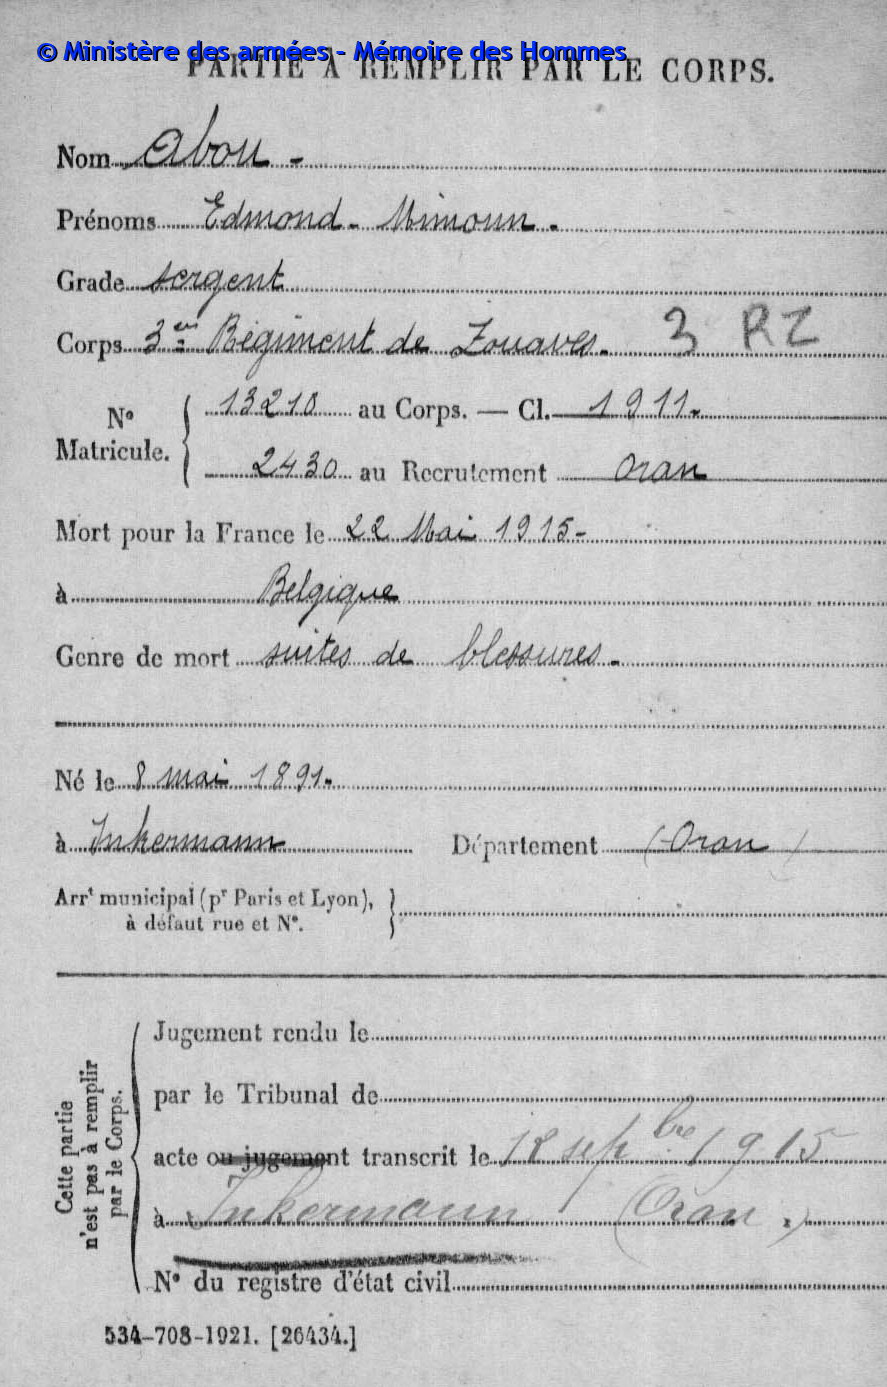 © Ministère des armées - Mémoire des Hommes
PARTIE À REMPLIR PAR LE CORPS.
Nom Abou -
Prénoms Edmond - Mimoun -
Grade sergent
Corps 3e Régiment de Zouaves. 3 RZ
N° Matricule. { 13210 au Corps. — Cl. 1911.
2430 au Recrutement Oran
Mort pour la France le 22 Mai 1915 -
à Belgique
Genre de mort suites de blessures -
Né le 8 mai 1891.
à Inkermann Département (Oran)
Arrt municipal (pr Paris et Lyon), }
à défaut rue et N°.
Cette partie
n'est pas à remplir
par le Corps.
Jugement rendu le
par le Tribunal de
acte ou jugement transcrit le 12 sepbre 1915
à Inkermann (Oran.)
N° du registre d'état civil
534-708-1921. [26434.]